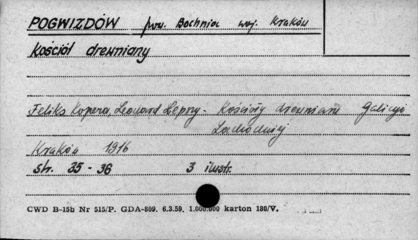 POGWIZDÓW pow. Bochnia woj. Kraków
kościół drewniany
Feliks Kopera, Leonard Lepszy - Kościoły drewniane Galicyi
Zachodniej
Kraków 1916
str. 35 - 36 3 ilustr.
CWD B-15b Nr 515/P. GDA-809. 6.3.59. 1.000.000 karton 180/V.